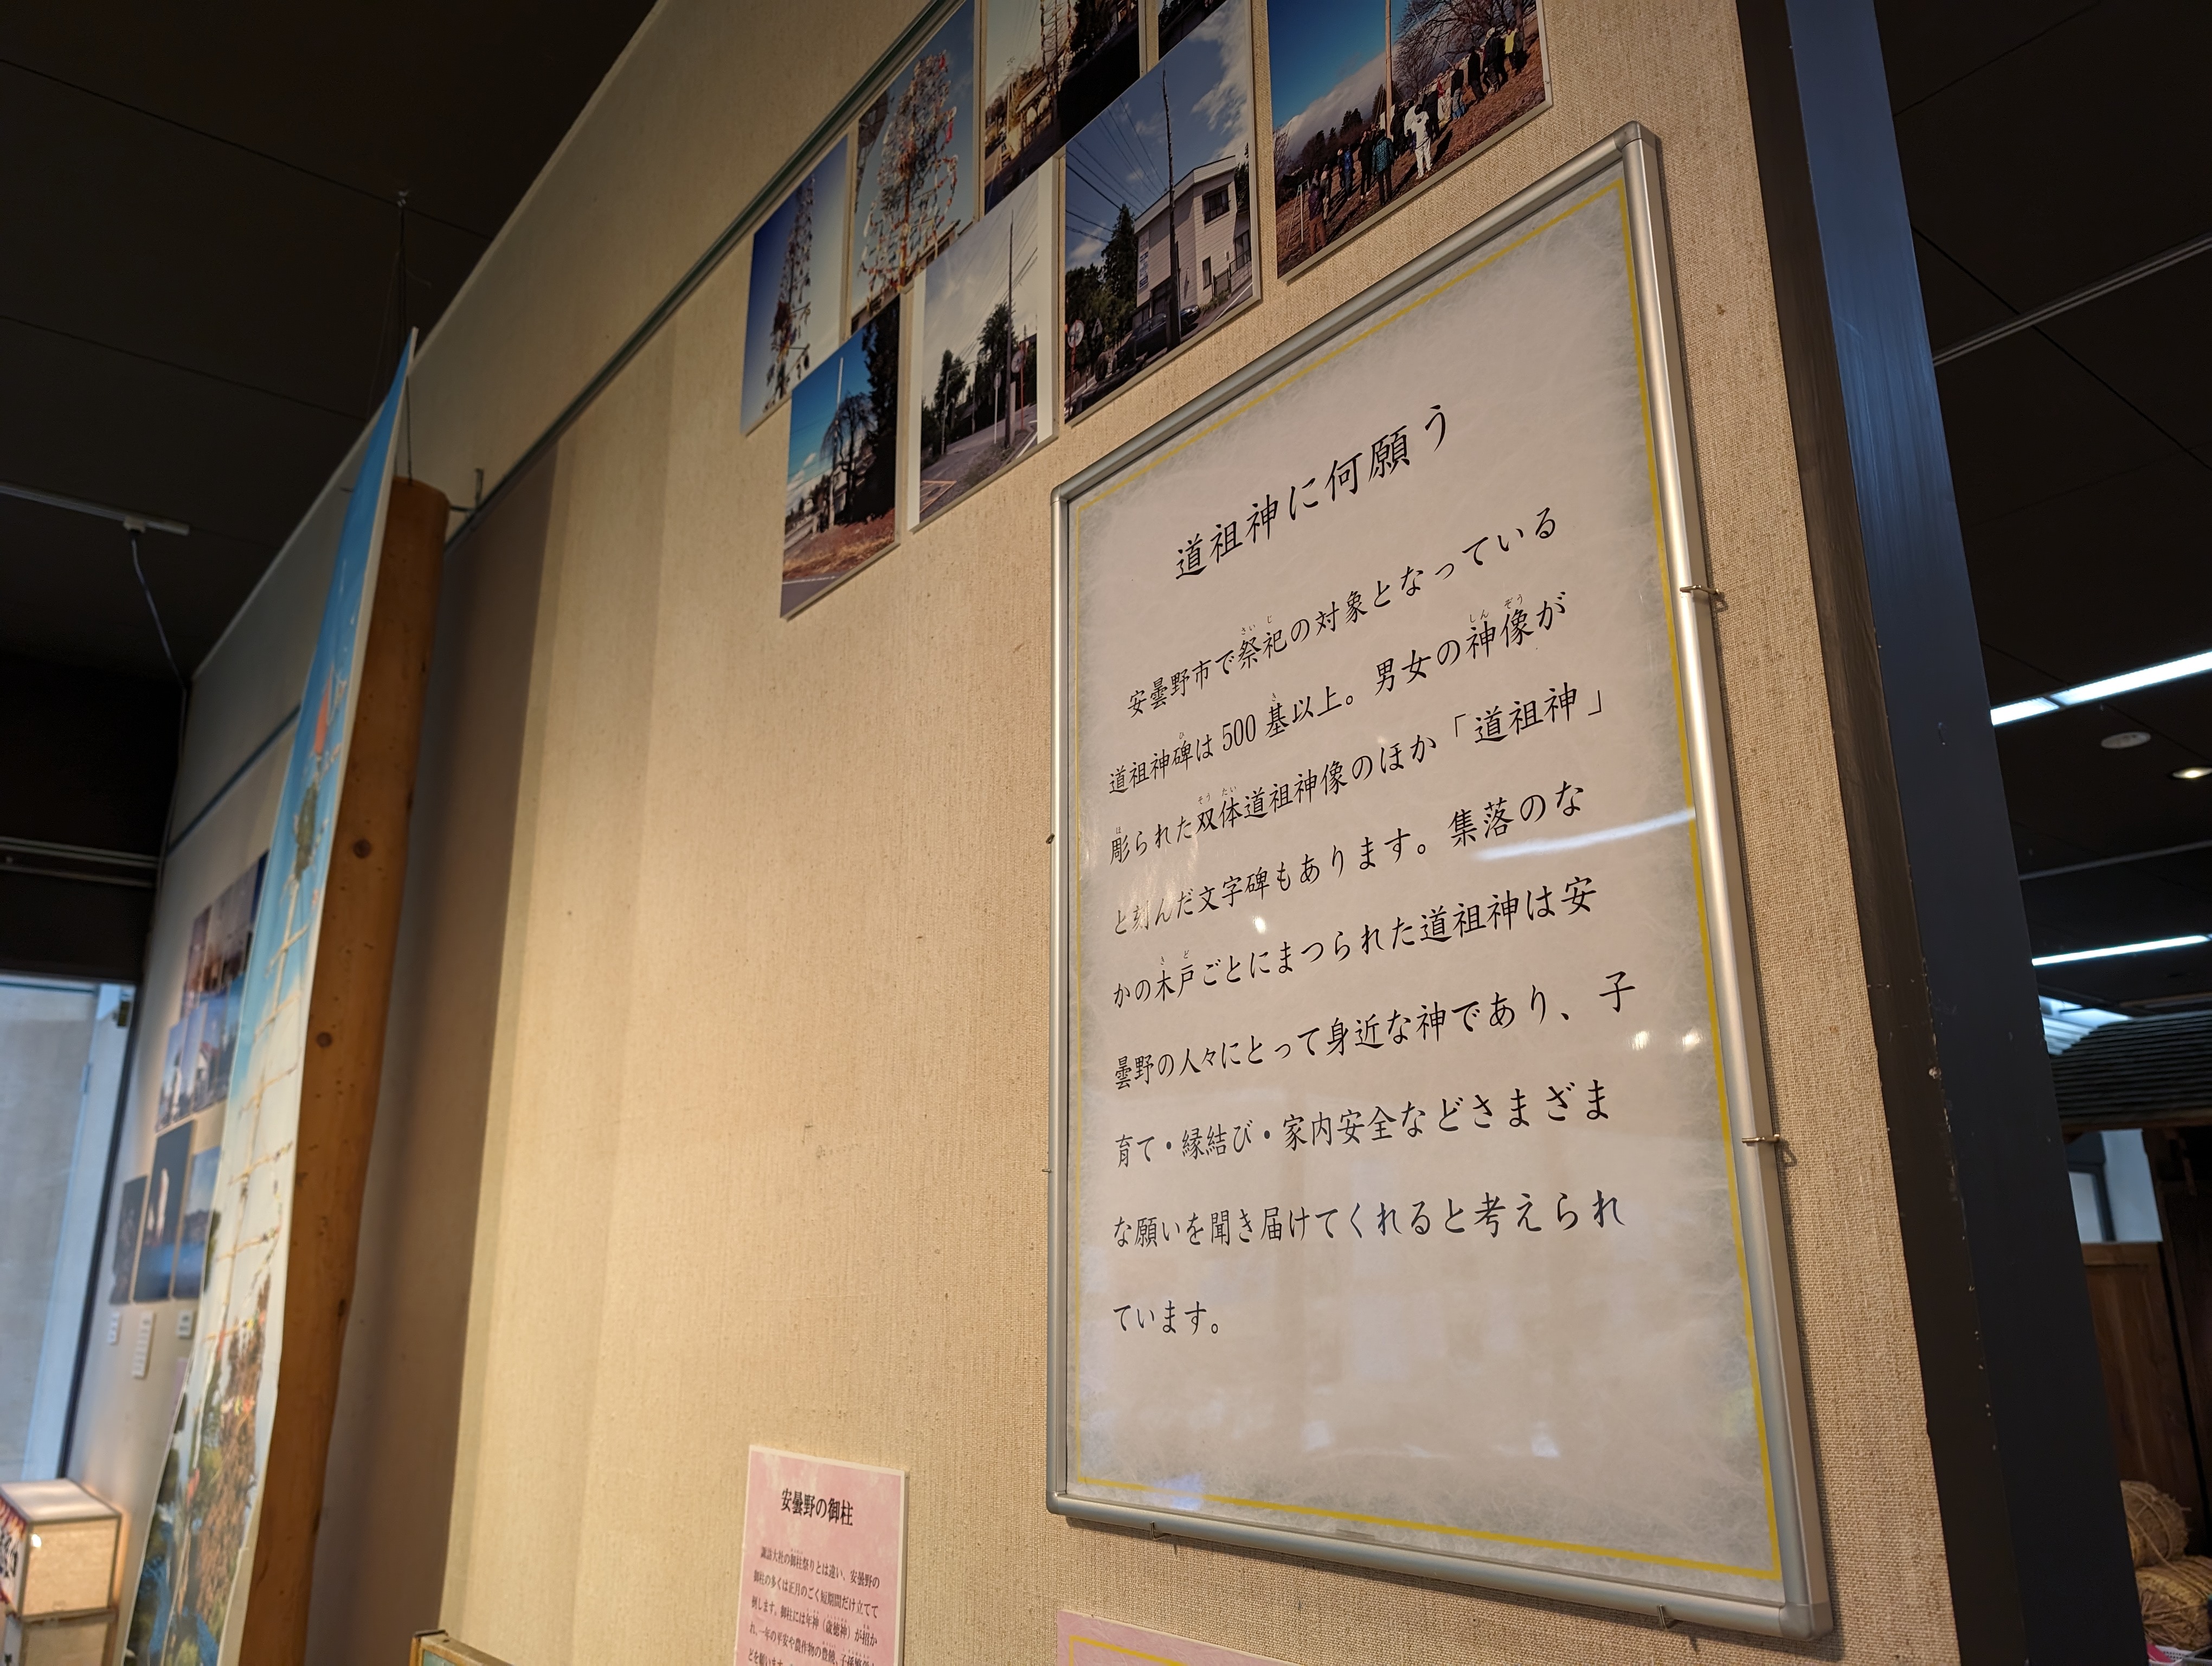 道祖神に何願う
安曇野市で祭祀の対象となっている
道祖神碑は500基以上。男女の神像が
彫られた双体道祖神像のほか「道祖神」
と刻んだ文字碑もあります。集落のな
かの木戸ごとにまつられた道祖神は安
曇野の人々にとって身近な神であり、子
育て・縁結び・家内安全などさまざま
な願いを聞き届けてくれると考えられ
ています。
安曇野の御柱
諏訪大社の御柱祭りとは違い、安曇野の
御柱の多くは正月のごく短期間だけ立てて
倒します。御柱には年神（歳徳神）が招か
れ、一年の平安や農作物の豊饒、子孫繁
どを願います